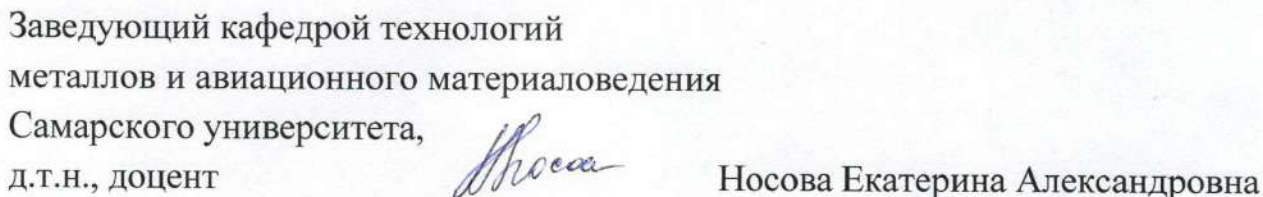 Заведующий кафедрой технологий
металлов и авиационного материаловедения
Самарского университета,
д.т.н., доцент Носова Екатерина Александровна